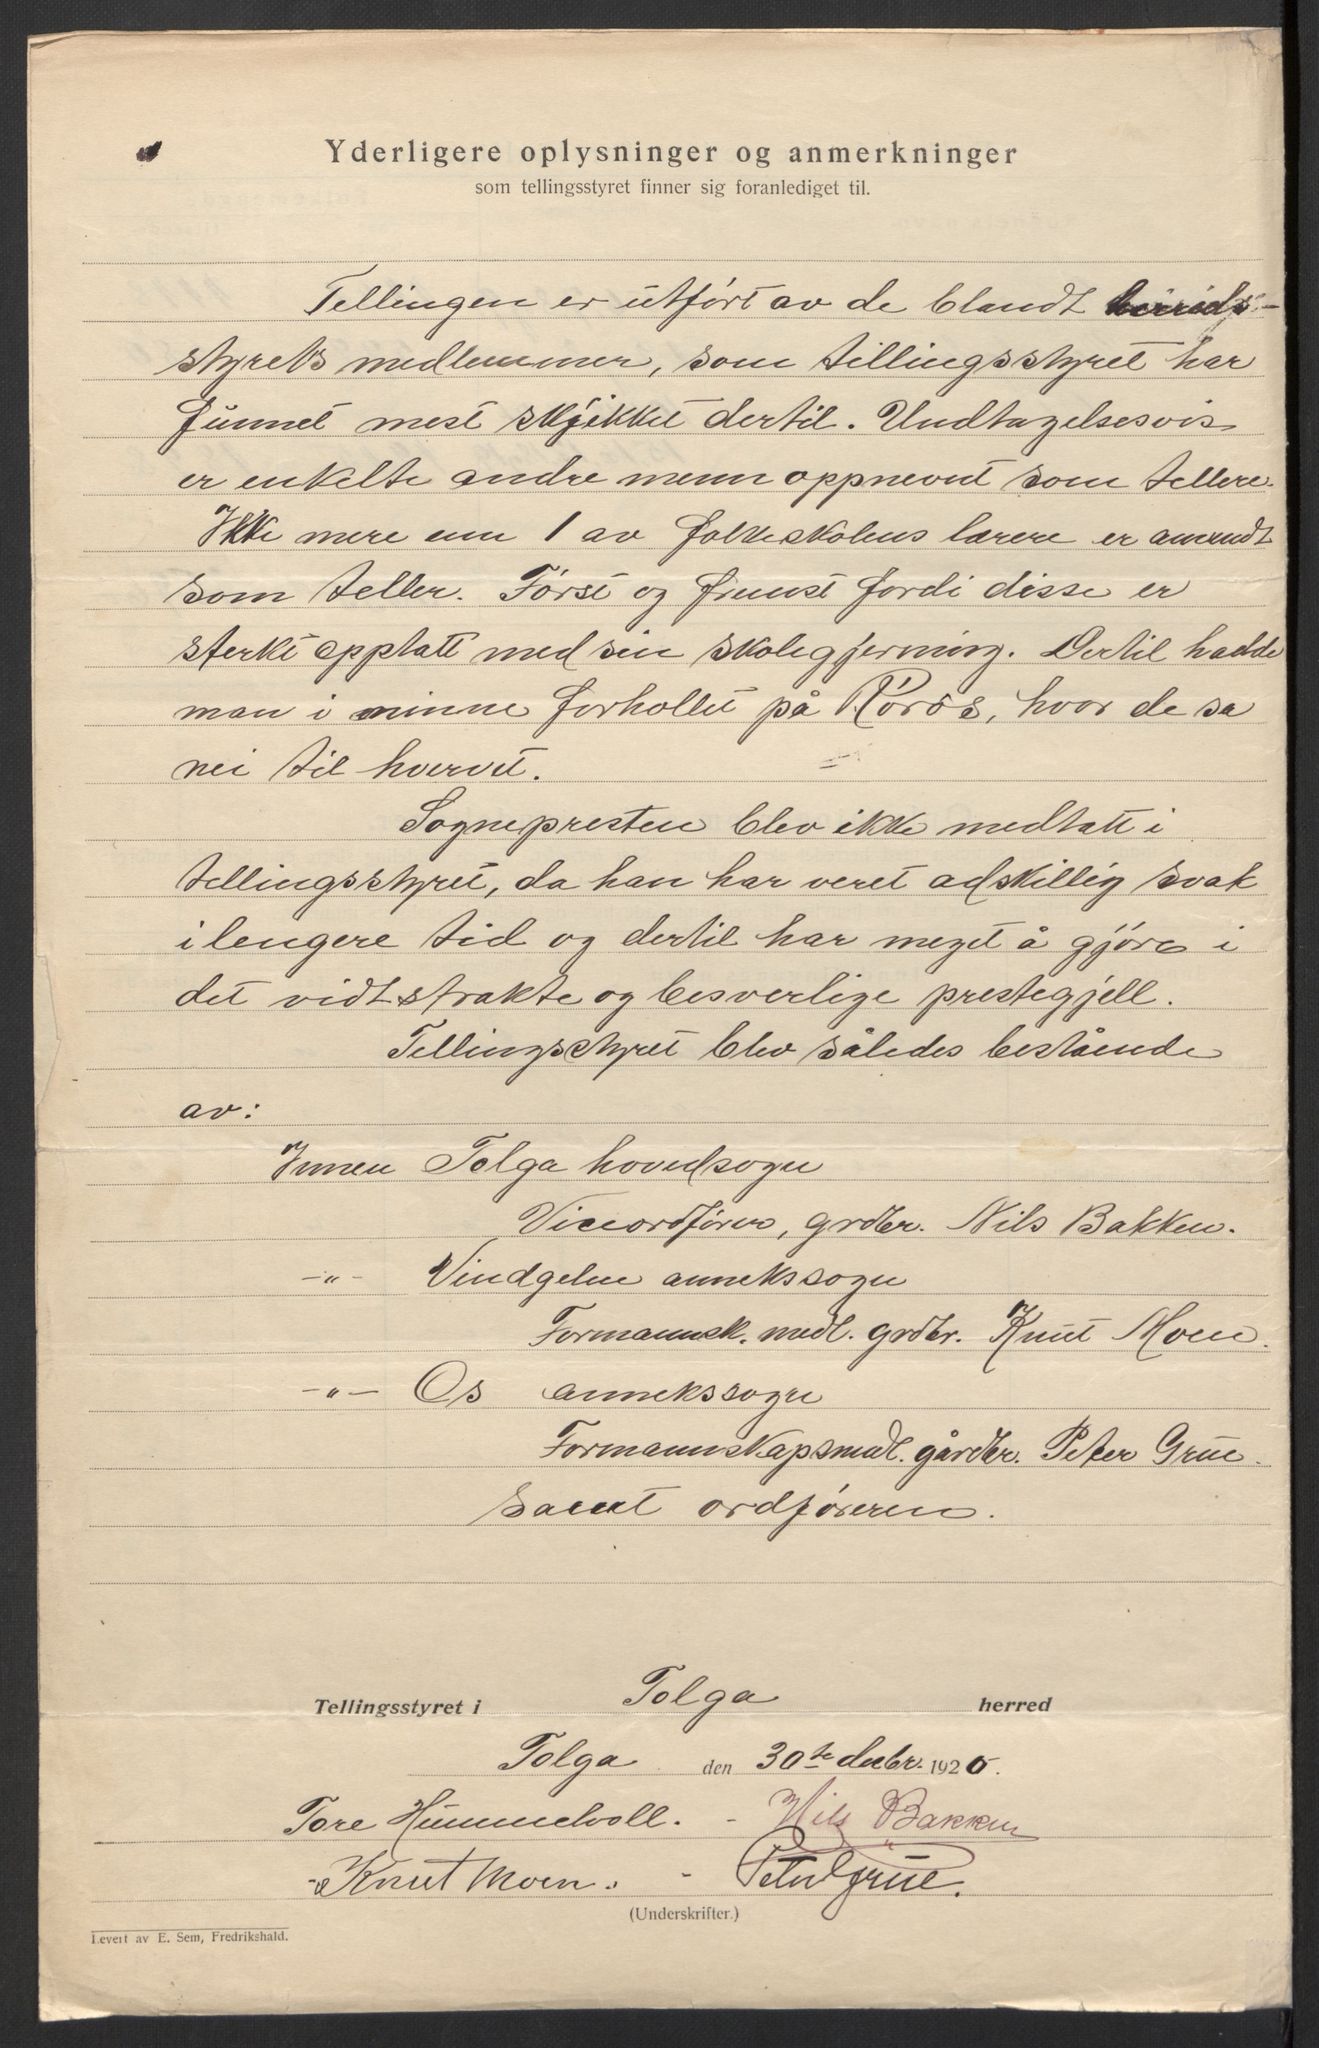 Yderligere oplysninger og anmerkninger
som tellingsstyret finner sig foranlediget til.
Tellingen er utført av de blandt herreds-
styrets medlemmer, som tellingsstyret har
funnet mest skjikket dertil. Undtagelsesvis
er enkelte andre menn oppnevnt som tellere.
Ikke mere enn 1 av folkeskolens lærere er anvendt
som teller. Først og fremst fordi disse er
sterkt opptatt med sin skolegjerning. Dertil hadde
man i minne forholdet på Röros, hvor de sa
nei til hvervet.
Sognepresten blev ikke medtatt i
tellingsstyret, da han har veret adskillig svak
i lengere tid og dertil har meget å gjøre i
det vidtstrakte og besverlige prestegjell.
Tellingsstyret blev således bestående
av:
Innen Tolga hovedsogn
Viceordfører, grdbr. Nils Bakken.
-"- Vindgelne annekssogn
Formannsk. medl. grdbr. Knut Moen.
-"- Os annekssogn
Formannskapsmedl. gårdbr. Peter Grue.
samt ordføreren.
Tellingsstyret i Tolga herred
Tolga den 30te decbr. 1920.
Tore Hummelvoll. - Nils Bakken
- Knut Moen. - Peter Grue.
(Underskrifter.)
Levert av E. Sem, Fredrikshald.